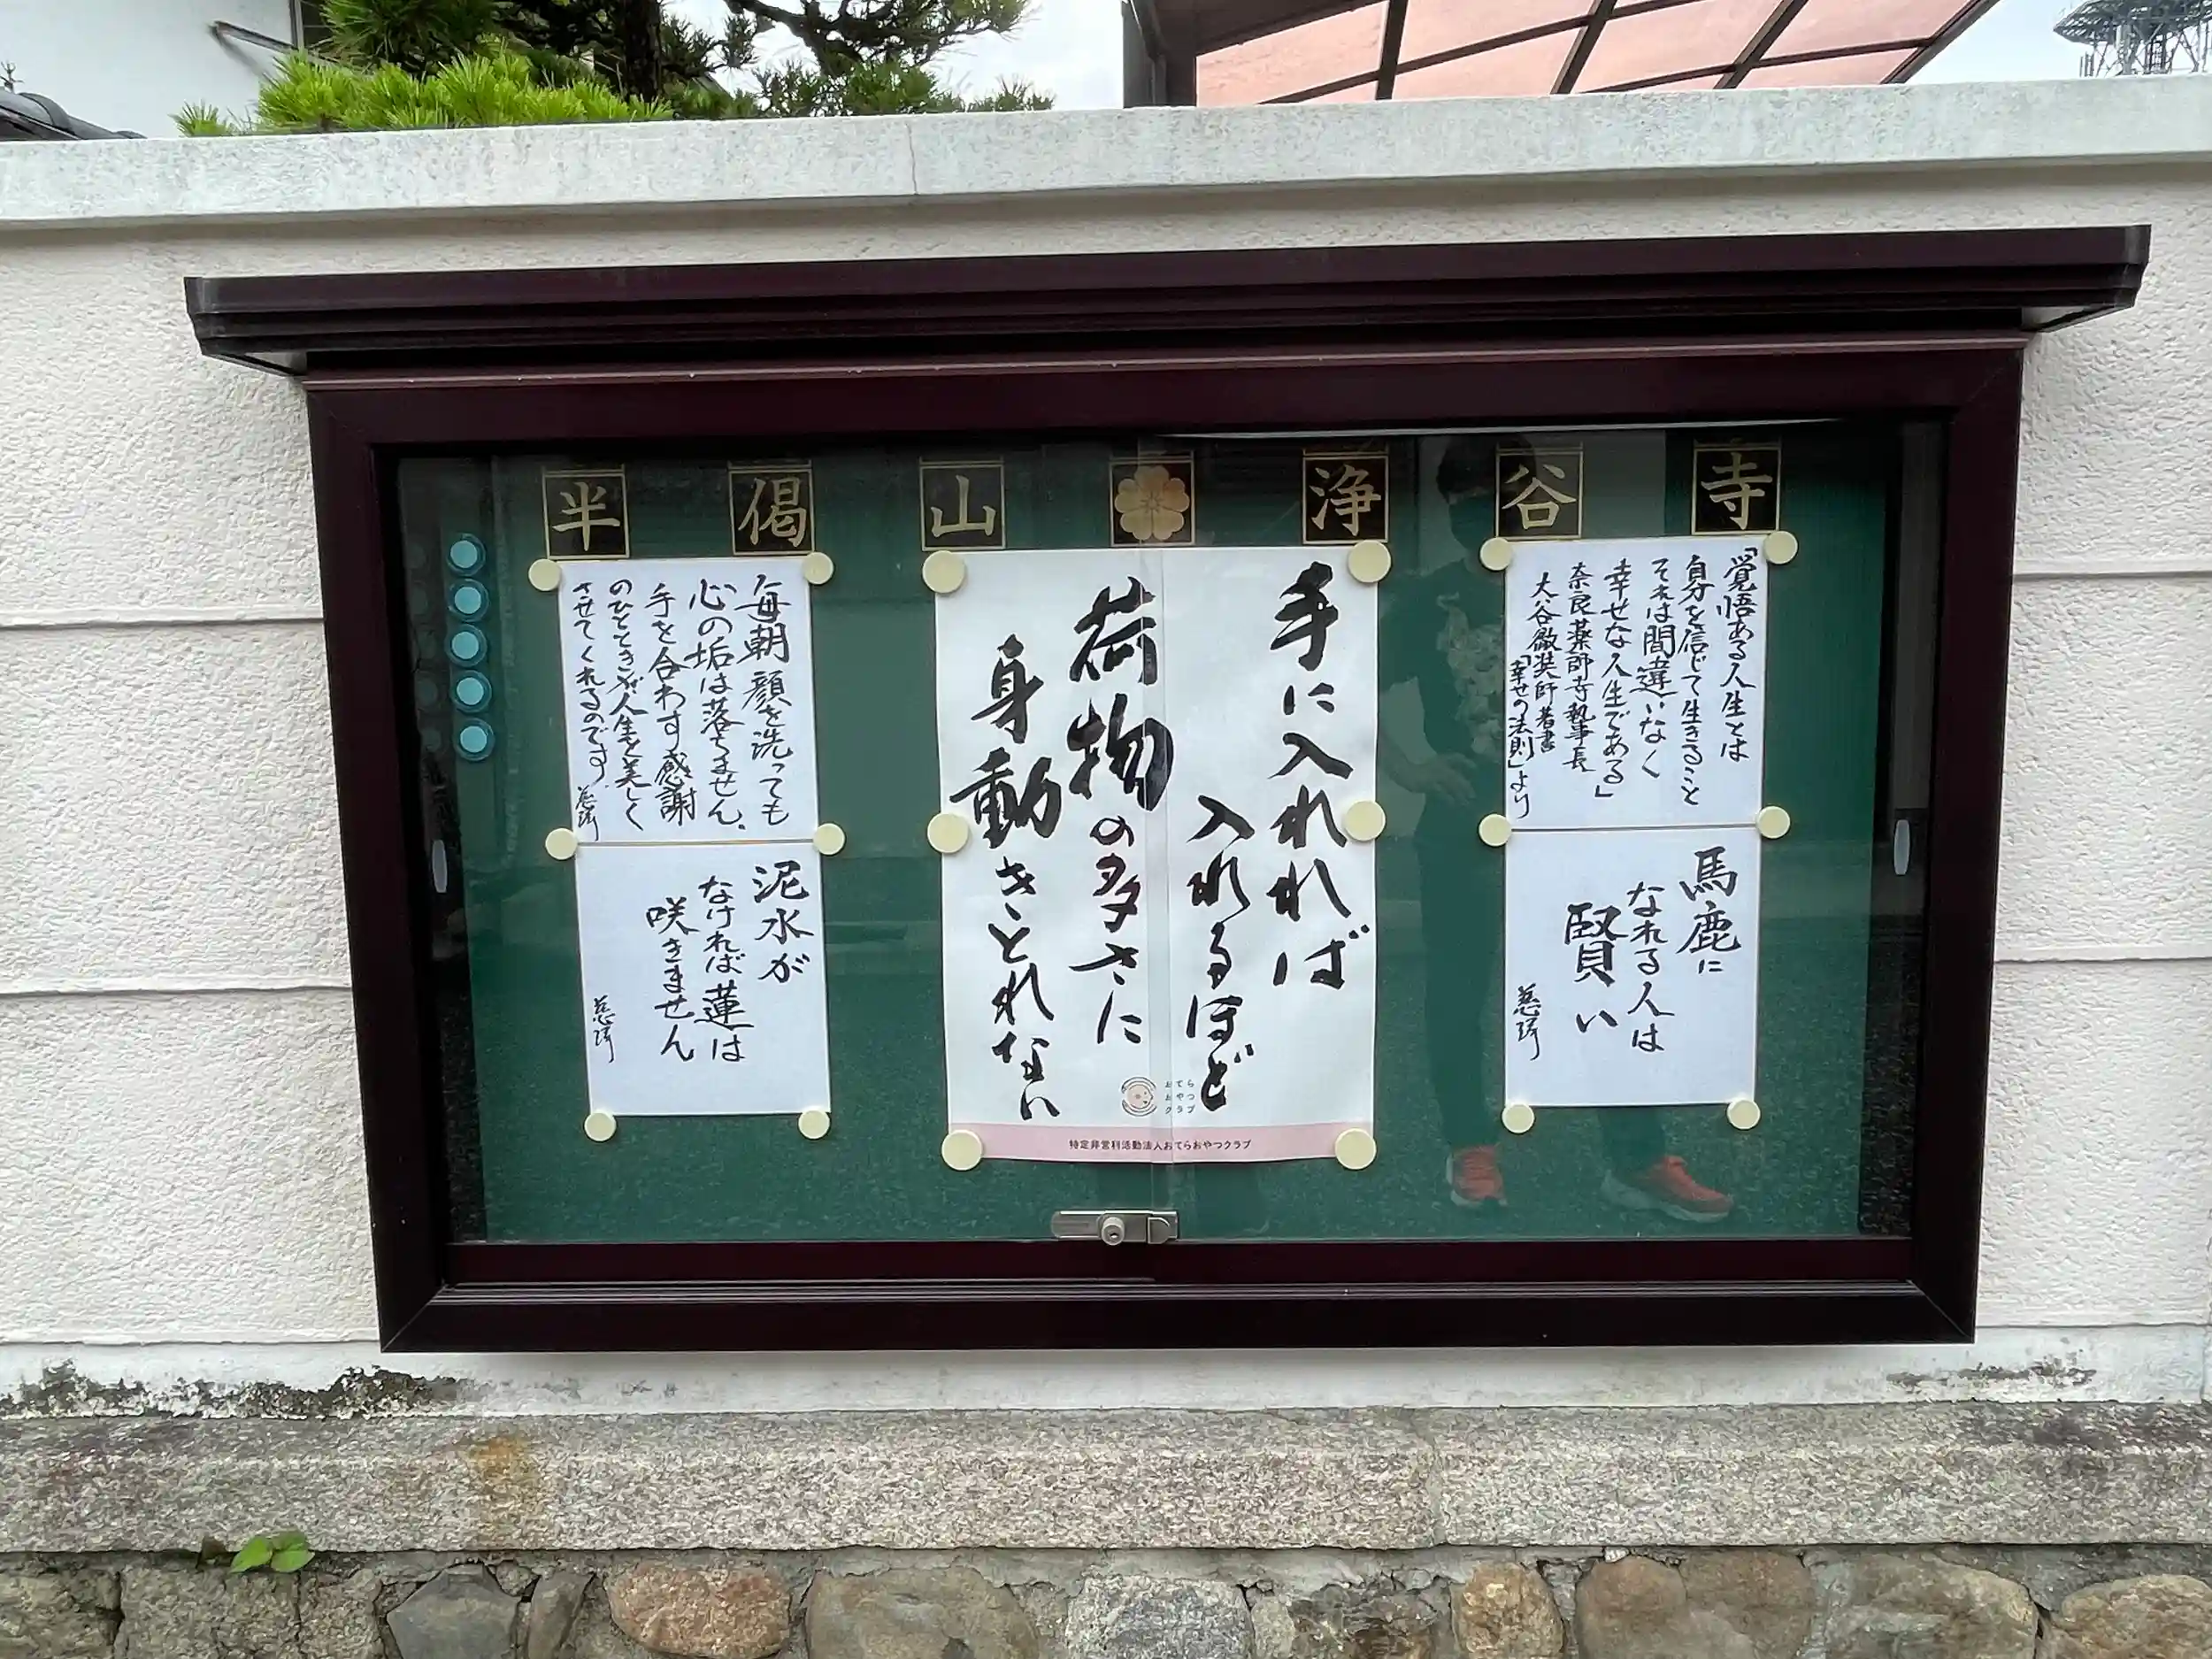 半偈山 浄谷寺
「覚悟ある人生とは
身を信じて生きること
それは間違いなく
幸せな人生である」
奈良薬師寺執事長
大谷徹奘師著書
「幸せの法則」より
馬鹿に
なれる人は
賢い
手に入れれば
入れるほど
荷物の多さに
身動きとれない
おてら
おやつ
クラブ
特定非営利活動法人おてらおやつクラブ
毎朝顔を洗っても
心の垢は落ちません。
手を合わす感謝
のひとときが人生を美しく
させてくれるのです。
泥水が
なければ蓮は
咲きません